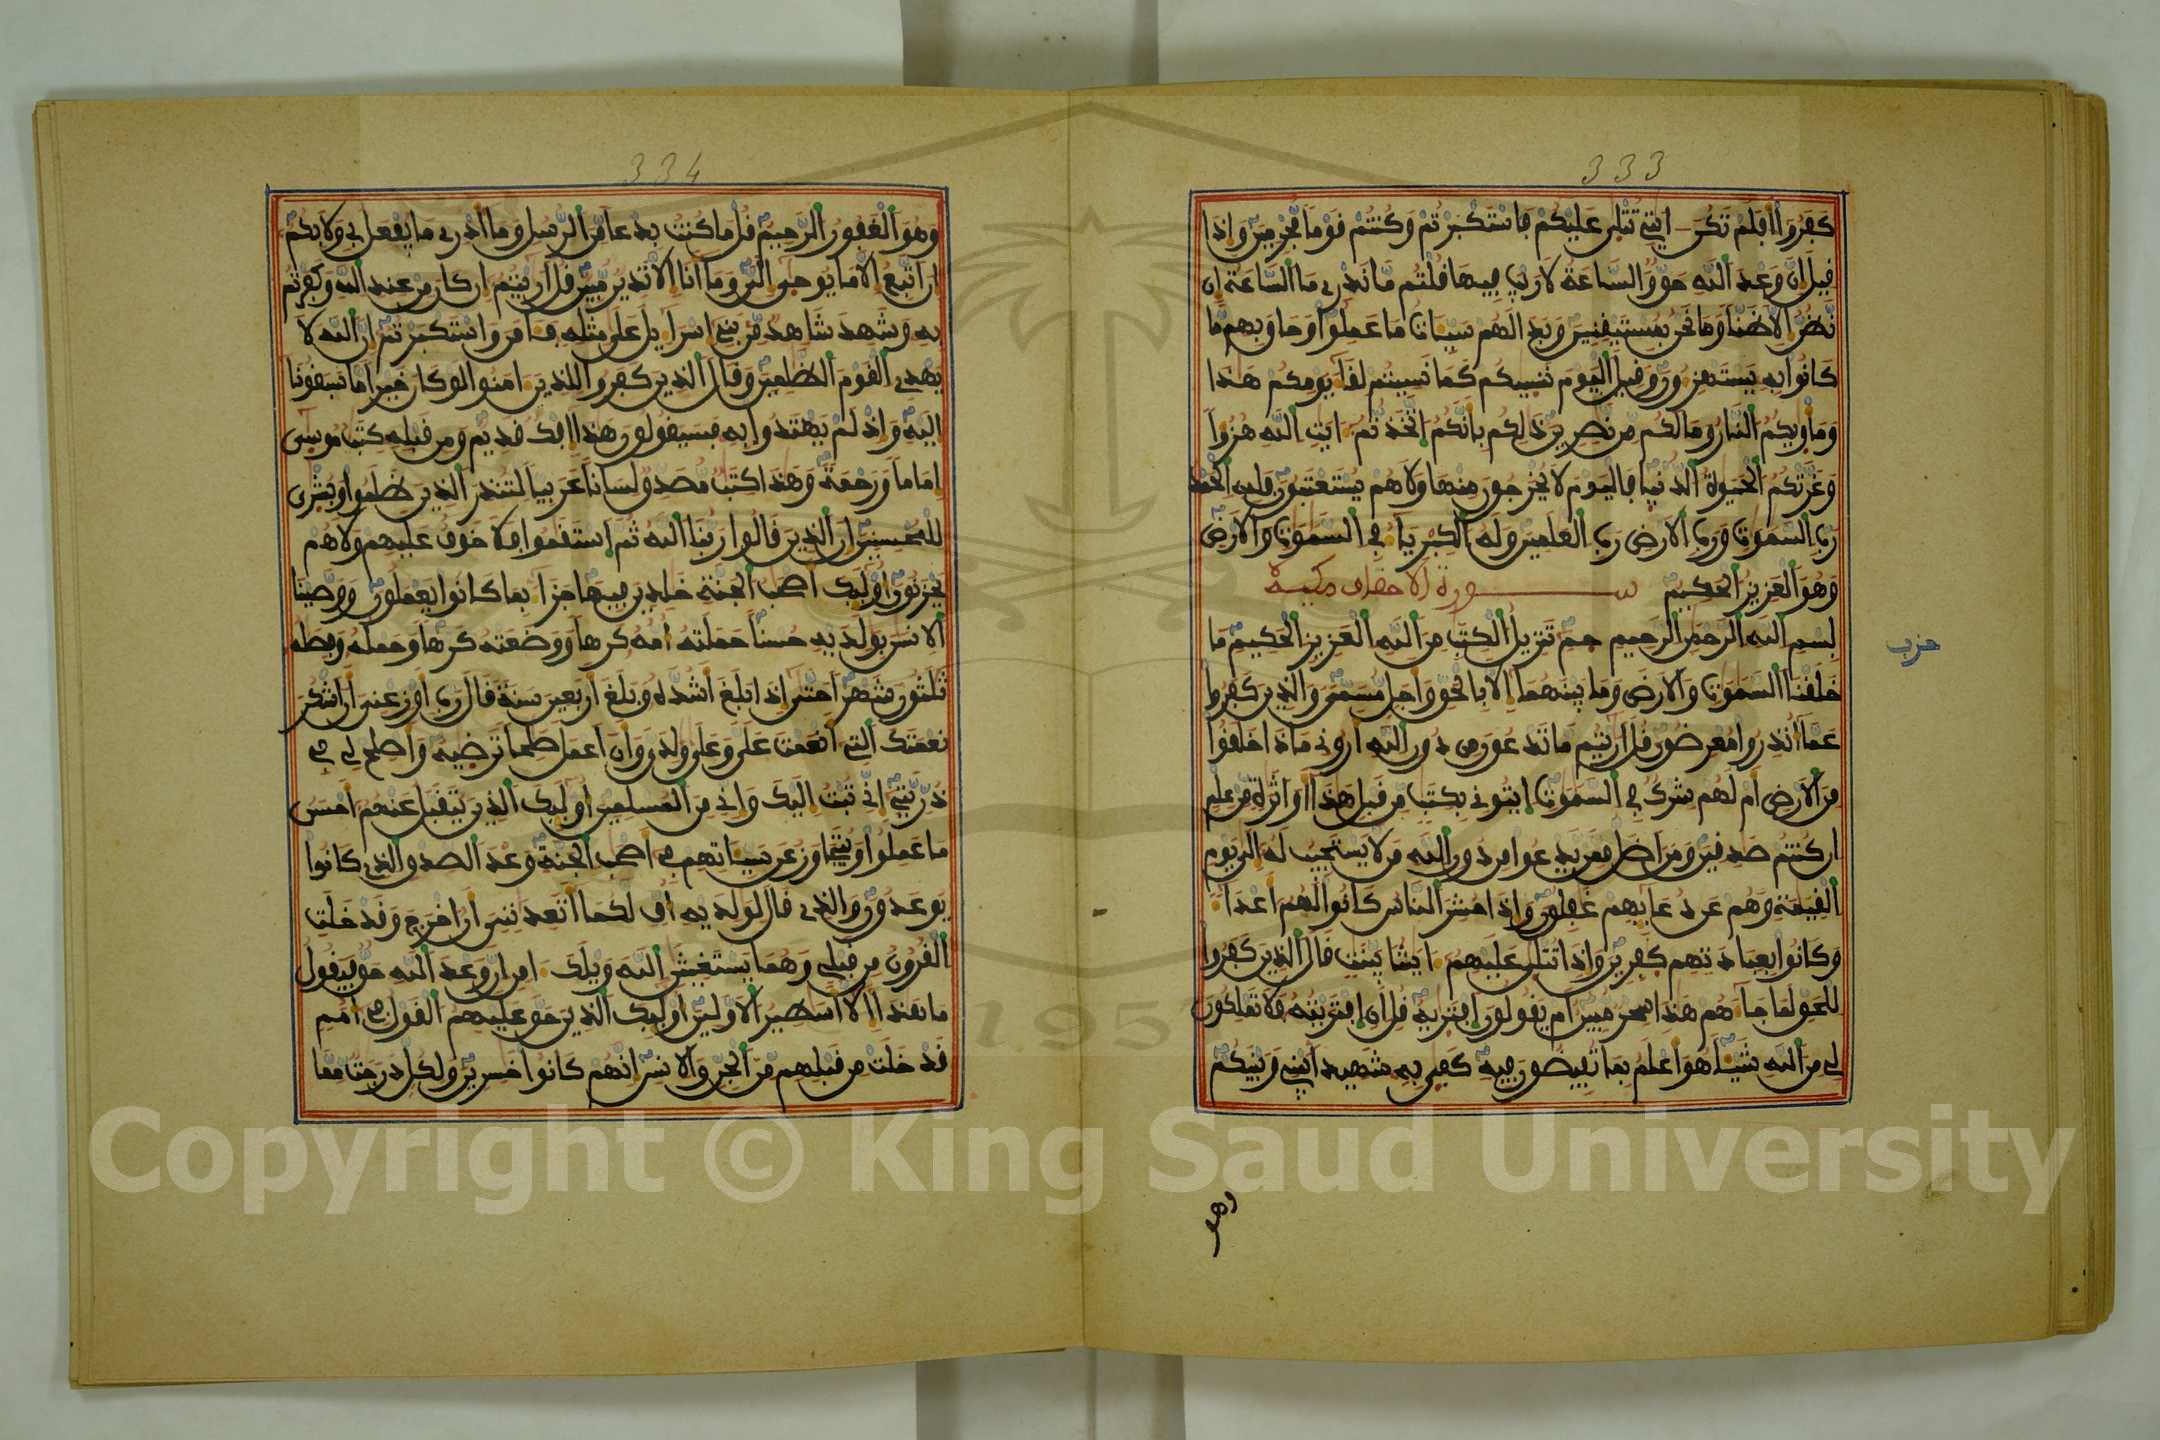 333
كفروا افلم تكن ايتي تتلى عليكم فاستكبرتم وكنتم قوما مجرمين واذا
قيل ان وعد الله حق والساعة لا ريب فيها قلتم ما ندري ما الساعة ان
نظن الا ظنا وما نحن بمستيقنين وبدا لهم سيئات ما عملوا وحاق بهم ما
كانوا به يستهزءون وقيل اليوم ننسيكم كما نسيتم لقاء يومكم هذا
ومأويكم النار وما لكم من نصرين ذلكم بانكم اتخذتم ايت الله هزؤا
وغرتكم الحيوة الدنيا فاليوم لا يخرجون منها ولا هم يستعتبون فلله الحمد
رب السموت ورب الارض رب العلمين وله الكبرياء في السموت والارض
وهو العزيز الحكيم سورة الاحقاف مكية
بسم الله الرحمن الرحيم حم تنزيل الكتب من الله العزيز الحكيم ما
حزب
خلقنا السموت والارض وما بينهما الا بالحق واجل مسمى والذين كفروا
عما انذروا معرضون قل اريتم ما تدعون من دون الله اروني ماذا خلقوا
من الارض ام لهم شرك في السموت ايتوني بكتب من قبل هذا او اثرة من علم
ان كنتم صدقين ومن اضل ممن يدعوا من دون الله من لا يستجيب له الى يوم
القيمة وهم عن دعائهم غفلون واذا حشر الناس كانوا لهم اعداء
وكانوا بعبادتهم كفرين واذا تتلى عليهم ايتنا بينت قال الذين كفروا
للحق لما جاءهم هذا سحر مبين ام يقولون افتريه قل ان افتريته فلا تملكون
لي من الله شيئا هو اعلم بما تفيضون فيه كفى به شهيدا بيني وبينكم
وهو
334
وهو الغفور الرحيم قل ما كنت بدعا من الرسل وما ادري ما يفعل بي ولا بكم
ان اتبع الا ما يوحى الي وما انا الا نذير مبين قل اريتم ان كان من عند الله وكفرتم
به وشهد شاهد من بني اسراءيل على مثله فئامن واستكبرتم ان الله لا
يهدي القوم الظلمين وقال الذين كفروا للذين امنوا لو كان خيرا ما سبقونا
اليه واذ لم يهتدوا به فسيقولون هذا افك قديم ومن قبله كتب موسى
اماما ورحمة وهذا كتب مصدق لسانا عربيا لتنذر الذين ظلموا وبشرى
للمحسنين ان الذين قالوا ربنا الله ثم استقموا فلا خوف عليهم ولا هم
يحزنون اوليك اصحب الجنة خلدين فيها جزاء بما كانوا يعملون ووصينا
الانسن بولديه حسنا حملته امه كرها ووضعته كرها وحمله وفصله
ثلثون شهرا حتى اذا بلغ اشده وبلغ اربعين سنة قال رب اوزعني ان اشكر
نعمتك التي انعمت علي وعلى ولدي وان اعمل صلحا ترضيه واصلح لي في
ذريتي اني تبت اليك واني من المسلمين اوليك الذين يتقبل عنهم احسن
ما عملوا ويتجاوز عن سيئاتهم في اصحب الجنة وعد الصدق الذي كانوا
يوعدون والذي قال لولديه اف لكما اتعدنني ان اخرج وقد خلت
القرون من قبلي وهما يستغيثن الله ويلك امن ان وعد الله حق فيقول
ما هذا الا اسطير الاولين اوليك الذين حق عليهم القول في امم
قد خلت من قبلهم من الجن والانس انهم كانوا خسرين ولكل درجت مما
Copyright © King Saud University
1957